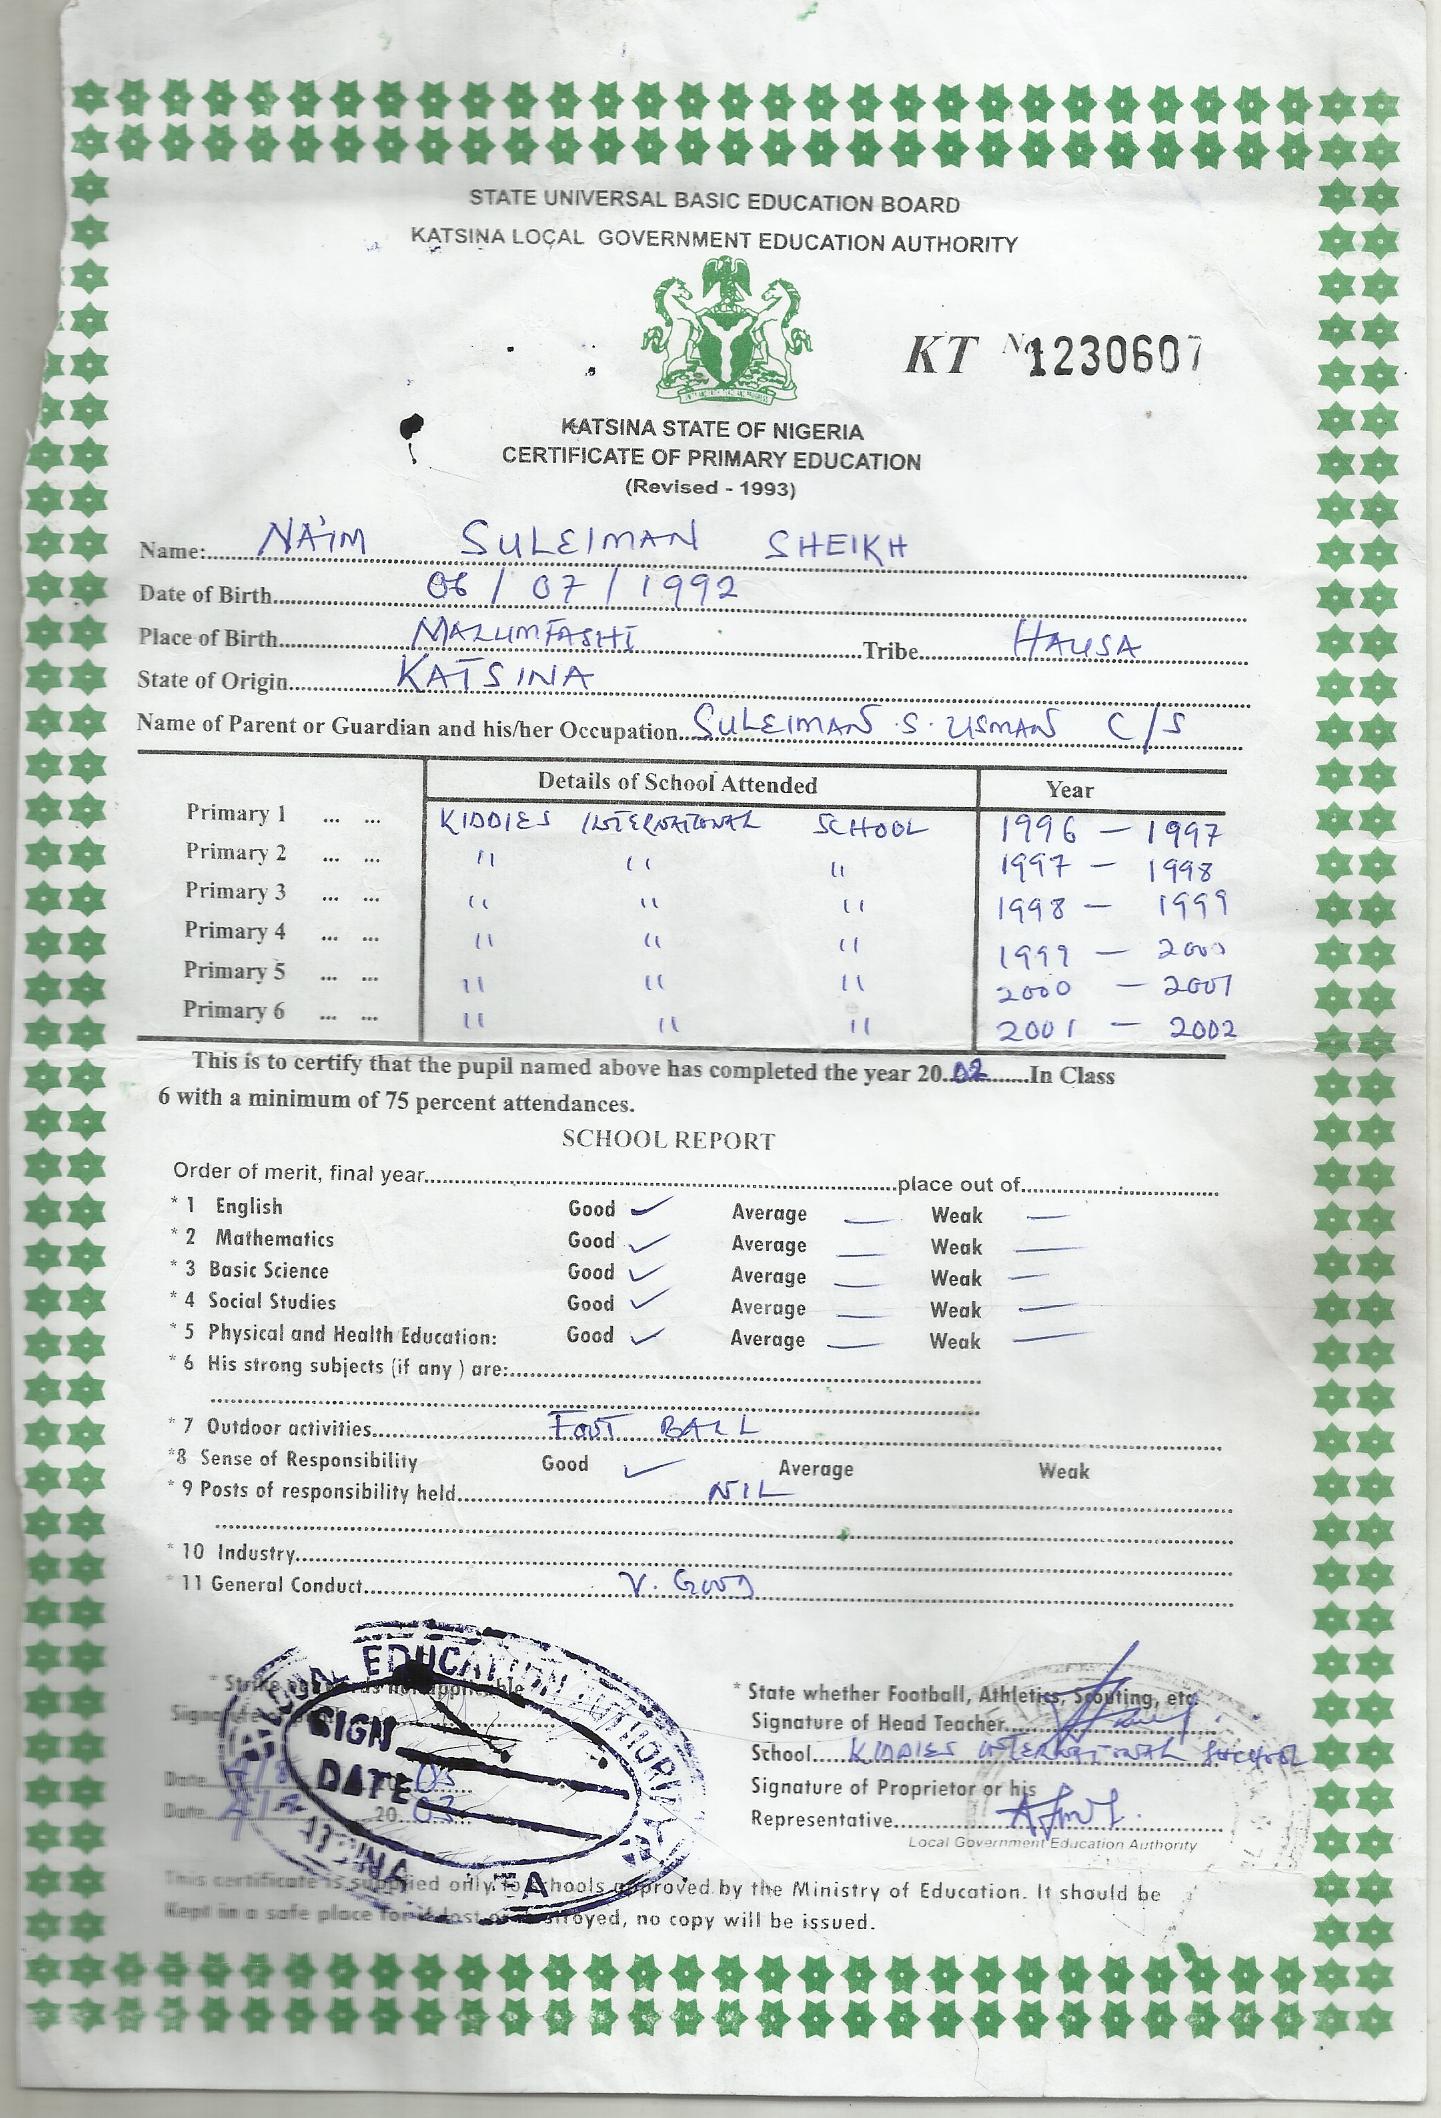 STATE UNIVERSAL BASIC EDUCATION BOARD
KATSINA LOCAL GOVERNMENT EDUCATION AUTHORITY
KT No 1230607
KATSINA STATE OF NIGERIA
CERTIFICATE OF PRIMARY EDUCATION
(Revised - 1993)
Name: NA'IM SULEIMAN SHEIKH
Date of Birth 06 / 07 / 1992
Place of Birth MALUMFASHI Tribe HAUSA
State of Origin KATSINA
Name of Parent or Guardian and his/her Occupation SULEIMAN .S. USMAN C/S
Details of School Attended Year
Primary 1 ... ... KIDDIES INTERNATIONAL SCHOOL 1996 — 1997
Primary 2 ... ... " " " 1997 — 1998
Primary 3 ... ... " " " 1998 — 1999
Primary 4 ... ... " " " 1999 — 2000
Primary 5 ... ... " " " 2000 — 2001
Primary 6 ... ... " " " 2001 — 2002
This is to certify that the pupil named above has completed the year 20 02 In Class
6 with a minimum of 75 percent attendances.
SCHOOL REPORT
Order of merit, final year place out of
* 1 English Good ✓ Average — Weak —
* 2 Mathematics Good ✓ Average — Weak —
* 3 Basic Science Good ✓ Average — Weak —
* 4 Social Studies Good ✓ Average — Weak —
* 5 Physical and Health Education: Good ✓ Average — Weak —
* 6 His strong subjects (if any ) are:
* 7 Outdoor activities FOOT BALL
*8 Sense of Responsibility Good ✓ Average Weak
* 9 Posts of responsibility held NIL
* 10 Industry
* 11 General Conduct V. GOOD
LOCAL EDUCATION AUTHORITY
SIGN
DATE
* Strike not applicable
* State whether Football, Athletics, Scouting, etc
Signature of Head Teacher
School KIDDIES INTERNATIONAL SCHOOL
Signature of Proprietor or his
Representative
Local Government Education Authority
Date 20 03
Date 20 03
This certificate is supplied only to schools approved by the Ministry of Education. It should be
Kept in a safe place for if lost or destroyed, no copy will be issued.